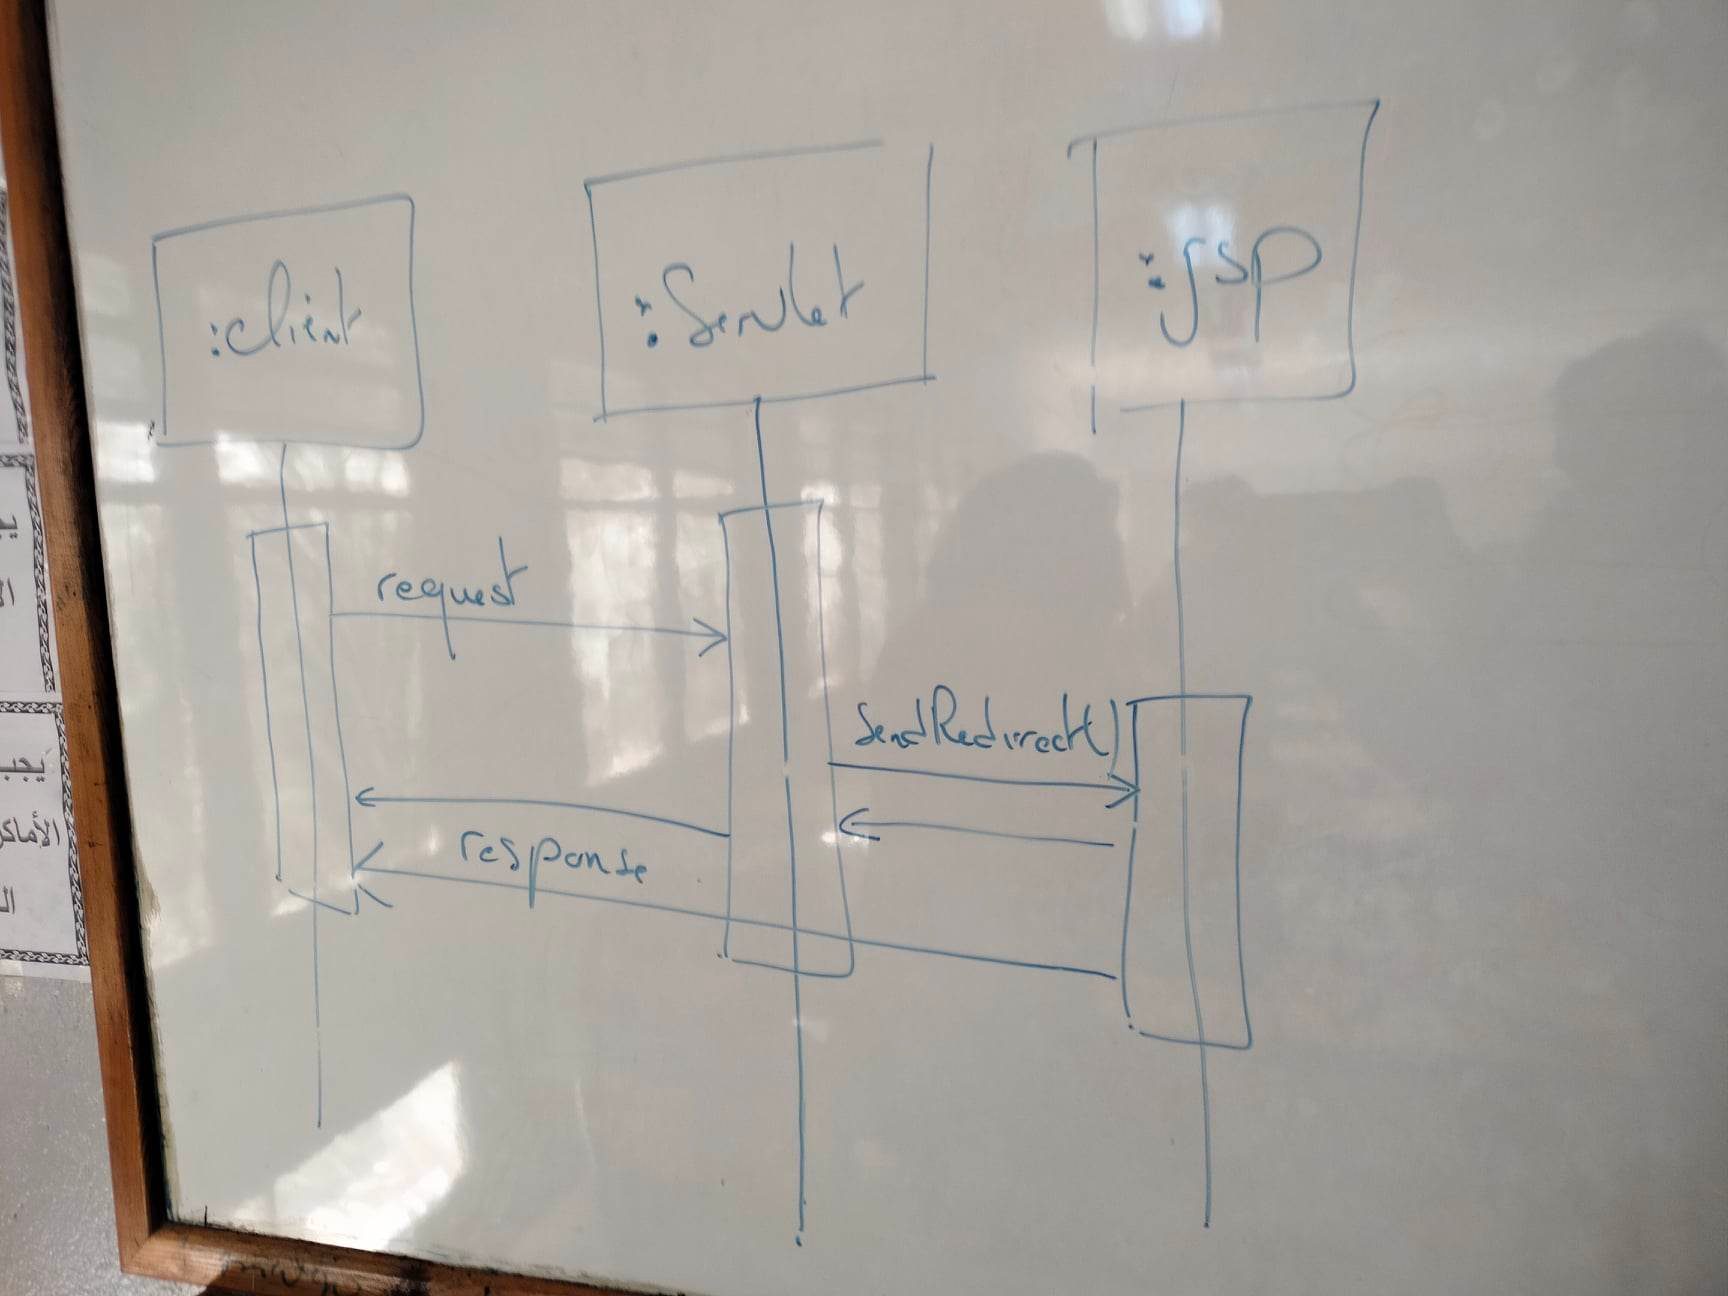 :client
:Servlet
:jsp
request
SendRedirect()
response
يجب
الأماكن